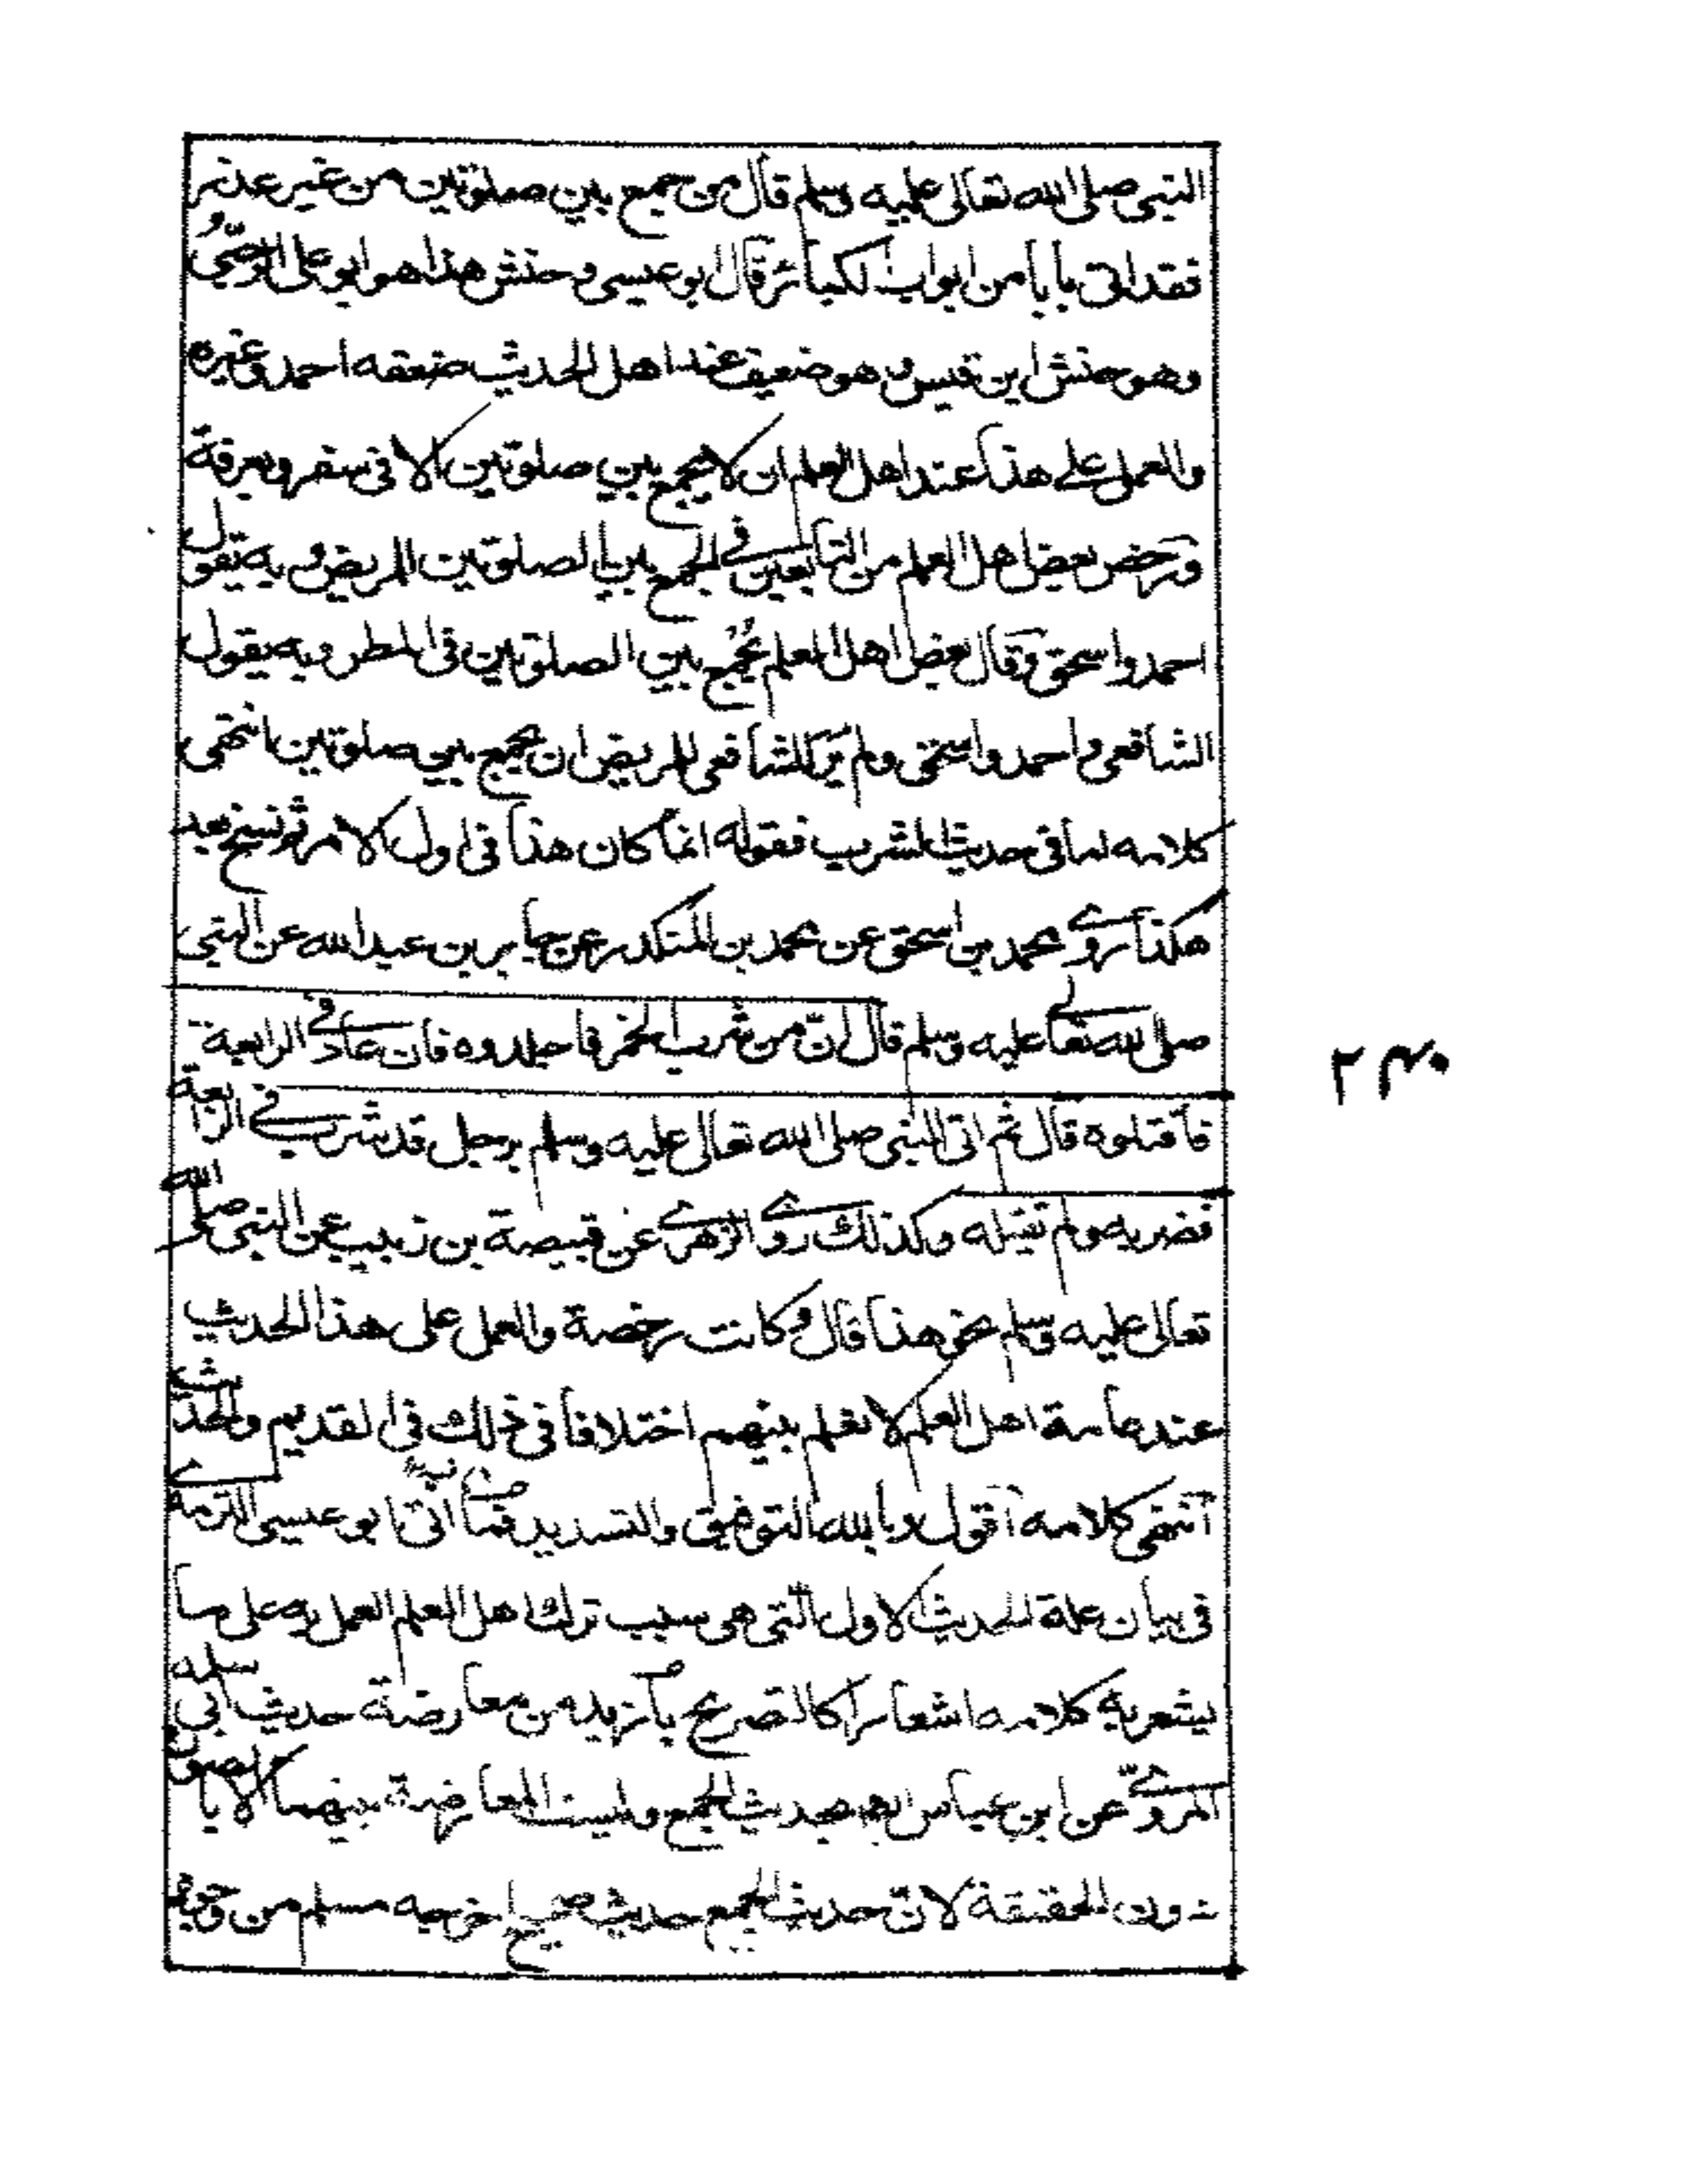 النبى صلى الله تعالى عليه وسلم قال من جمع بين صلوتين من غير عذر
فقد اتى بابا من ابواب الكبائر قال ابو عيسى وحنش هذا هو ابو على الرحبيّ
وهو حنش ابن قيس وهو ضعيف عند اهل الحديث ضعفه احمد وغيره
والعمل على هذا عند اهل العلم ان لا يجمع بين صلوتين الا فى سفر وبعرفة
ورخص بعض اهل العلم من التابعين فى الجمع بين الصلوتين للمريض وبه يقول
احمد واسحق وقال بعض اهل العلم يُجمع بين الصلوتين فى المطر وبه يقول
الشافعى واحمد واسحق ولم ير الشافعى للمريض ان يجمع بين صلوتين انتهى
كلامه اما فى حديث الشرب فقوله انما كان هذا فى اول الامر ثم نسخ بعد
هكذا روى محمد بن اسحق عن محمد بن المنكدر عن جابر بن عبد الله عن النبى
صلى الله تعالى عليه وسلم قال انّ من شرب الخمر فاجلدوه فان عاد فى الرابعة
فاقتلوه قال ثم اتى النبى صلى الله تعالى عليه وسلم برجل قد شرب فى الرابعة
فضربه ولم يقتله وكذلك روى الزهرى عن قبيصة بن ذييب عن النبى صلى الله
تعالى عليه وسلم نحو هذا قال وكانت رخصة والعمل على هذا الحديث
عند عامة اهل العلم لا نعلم بينهم اختلافا فى ذلك فى القديم والحديث
انتهى كلامه اقول وبالله التوفيق والتسديد فما اتى به ابو عيسى الترمذى
فى بيان علة الحديث الاول التى هى سبب ترك اهل العلم العمل به على ما
يشعر به كلامه اشعارا كالتصريح بأزيد من معارضة حديث ابى سلمة
المروىّ عن ابن عباس لحديث الجمع وليست المعارضة بينهما الا بالصورة
دون الحقيقة لانّ حديث الجمع حديث صحيح اخرجه مسلم من وجوه
٢٤٠